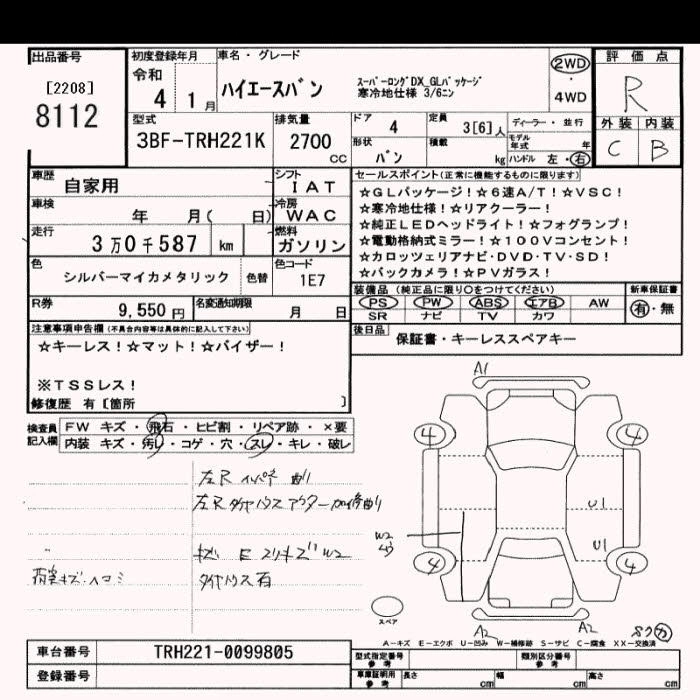 出品番号
[2208]
8112
初度登録年月
令和
4 1月
車名・グレード
ハイエースバン
スーパーロングDX_GLパッケージ
寒冷地仕様 3/6ニン
2WD
・
4WD
評価点
R
外装 内装
C B
型式
3BF-TRH221K
排気量
2700
cc
ドア 4
定員 3[6]人
ディーラー・並行
形状 バン
積載 kg
モデル年式 年
ハンドル 左・右
車歴 自家用
シフト IAT
車検 年 月( 日)
冷房 WAC
走行 3万0千587 km
燃料 ガソリン
色 シルバーマイカメタリック 色替
色コード 1E7
R券 9,550円
名変通知期限 月 日
セールスポイント(正常に機能するものに限ります)
☆GLパッケージ!☆6速A/T!☆VSC!
☆寒冷地仕様!☆リアクーラー!
☆純正LEDヘッドライト!☆フォグランプ!
☆電動格納式ミラー!☆100Vコンセント!
☆カロッツェリアナビ・DVD・TV・SD!
☆バックカメラ!☆PVガラス!
装備品(純正品に限り〇をつけてください)
新車保証書
PS PW ABS エアB AW
有・無
SR ナビ TV カワ
後日品 保証書・キーレススペアキー
注意事項申告欄(不具合内容等は具体的に記入して下さい)
☆キーレス!☆マット!☆バイザー!
※TSSレス!
修復歴 有[箇所 ]
検査員記入欄
FW キズ・飛石・ヒビ割・リペア跡・×要
内装 キズ・汚レ・コゲ・穴・スレ・キレ・破レ
左R インパネ 曲り
荷室キズ・ヘコミ
タイヤハウス石
A1
4 4
U1
W2
U1
4 4
スペア
A2 A2
A-キズ E-エクボ U-凹み W-補修跡 S-サビ C-腐食 XX-交換済
車台番号 TRH221-0099805
登録番号
型式指定番号 参考
類別区分番号 参考
車庫証明用 参考
長さ cm 幅 cm 高さ cm